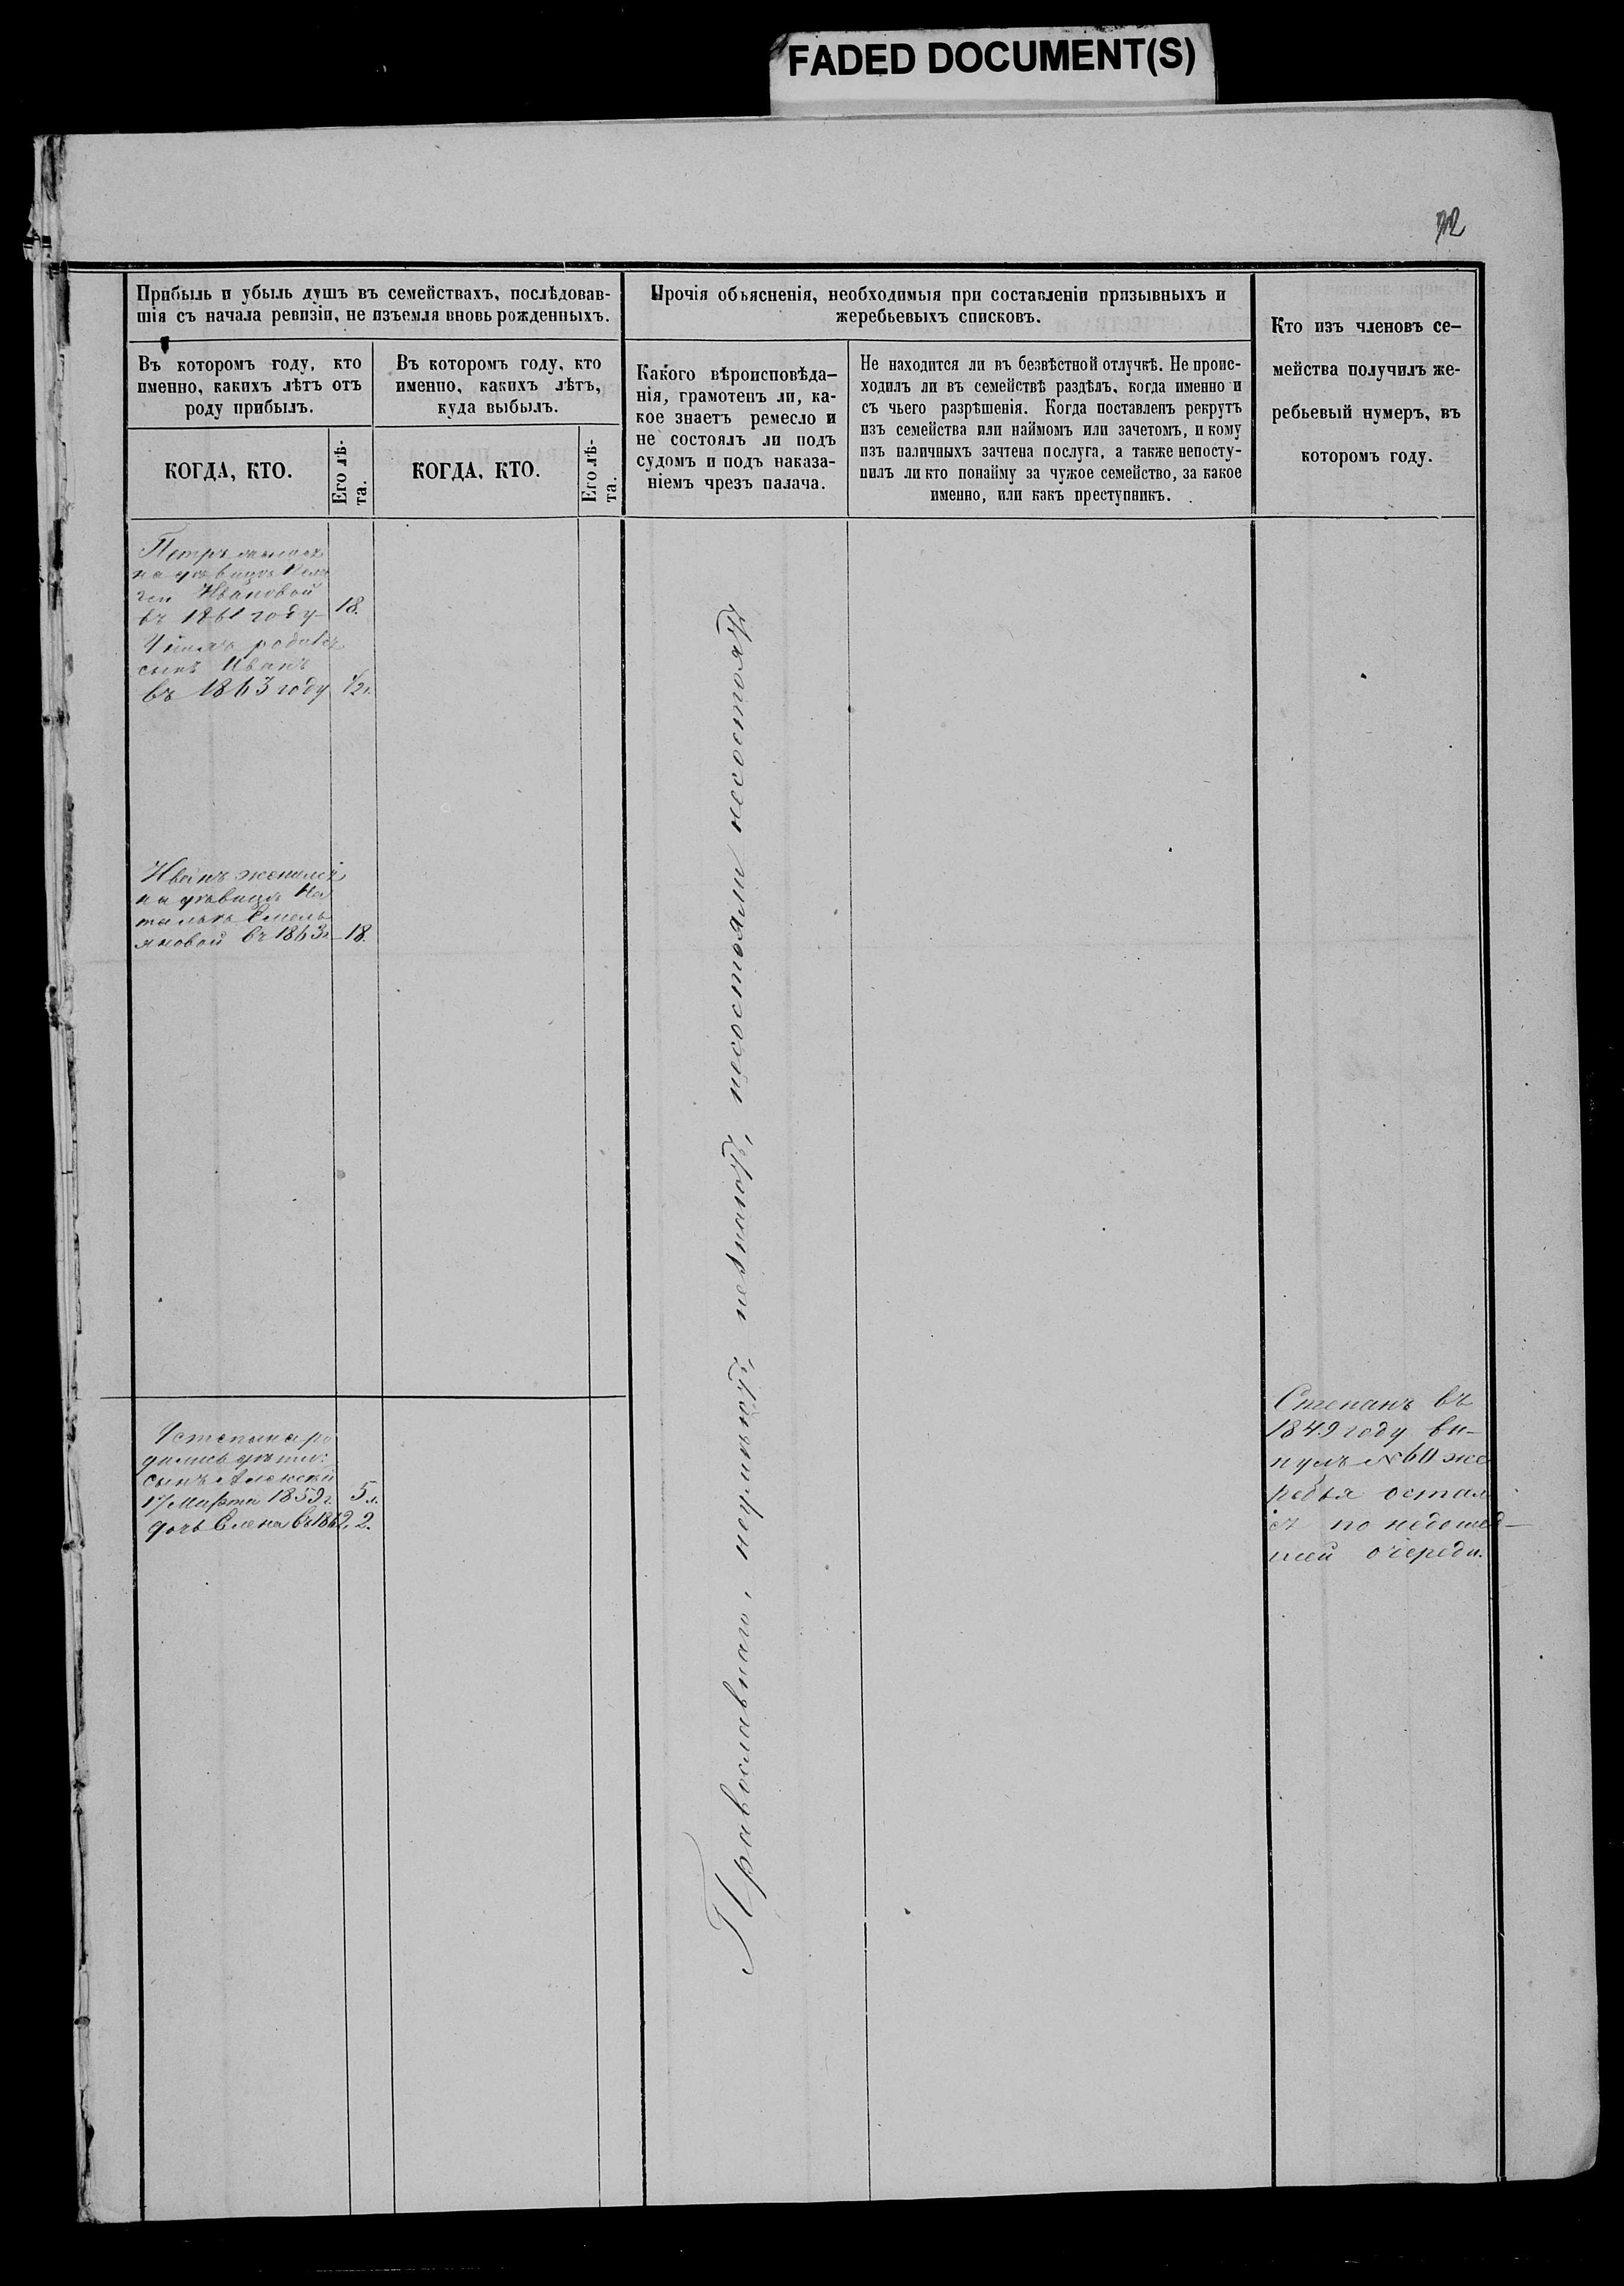 FADED DOCUMENT(S)
Прибыль и убыль душъ въ семействахъ, послѣдовав-
шія съ начала ревизіи, не изъемля вновь рожденныхъ.
Прочія объясненія, необходимыя при составленіи призывныхъ и
жеребьевыхъ списковъ.
Кто изъ членовъ се-
мейства получилъ же-
ребьевый нумеръ, въ
которомъ году.
Въ которомъ году, кто
именно, какихъ лѣтъ отъ
роду прибылъ.
Въ которомъ году, кто
именно, какихъ лѣтъ,
куда выбылъ.
Какого вѣроисповѣда-
нія, грамотенъ ли, ка-
кое знаетъ ремесло и
не состоялъ ли подъ
судомъ и подъ наказа-
ніемъ чрезъ палача.
Не находится ли въ безвѣстной отлучкѣ. Не проис-
ходилъ ли въ семействѣ раздѣлъ, когда именно и
съ чьего разрѣшенія. Когда поставленъ рекрутъ
изъ семейства или наймомъ или зачетомъ, и кому
изъ наличныхъ зачтена послуга, а также непосту-
пилъ ли кто понайму за чужое семейство, за какое
именно, или какъ преступникъ.
КОГДА, КТО.
Его лѣ-
та.
КОГДА, КТО.
Его лѣ-
та.
Петръ
на дѣвицѣ
Ивановой
въ 1861 году 18.
родился
сынъ Иванъ
въ 1863 году 1/2 г.
Иванъ женился
на дѣвицѣ На
тальѣ Емель
яновой въ 1863 г. 18.
Устепана ро
дились дѣти:
сынъ Алексѣй
17 Марта 1859 г. 5 л.
дочь Елена въ 1862. 2.
Православнаго, неумѣютъ, незнаютъ, несостояли несостоятъ
Степанъ въ
1849 году вы-
нулъ № 60 же
ребья остал
ся по недошед-
шей очереди.